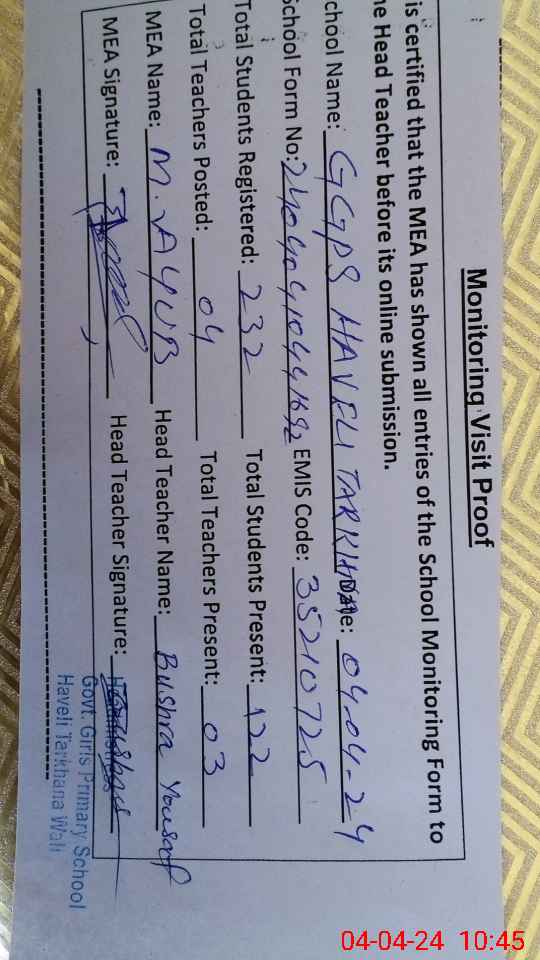 Monitoring Visit Proof
is certified that the MEA has shown all entries of the School Monitoring Form to
he Head Teacher before its online submission.
chool Name: GGPS HAVELI TARKHA Date: 04-04-24
School Form No: EMIS Code: 35210725
Total Students Registered: 232 Total Students Present: 122
Total Teachers Posted: 04 Total Teachers Present: 03
MEA Name: M. AYUB Head Teacher Name: Bushra Yousaf
MEA Signature: Head Teacher Signature:
Headmistress
Govt. Girls Primary School
Haveli Tarkhana Wali
04-04-24 10:45